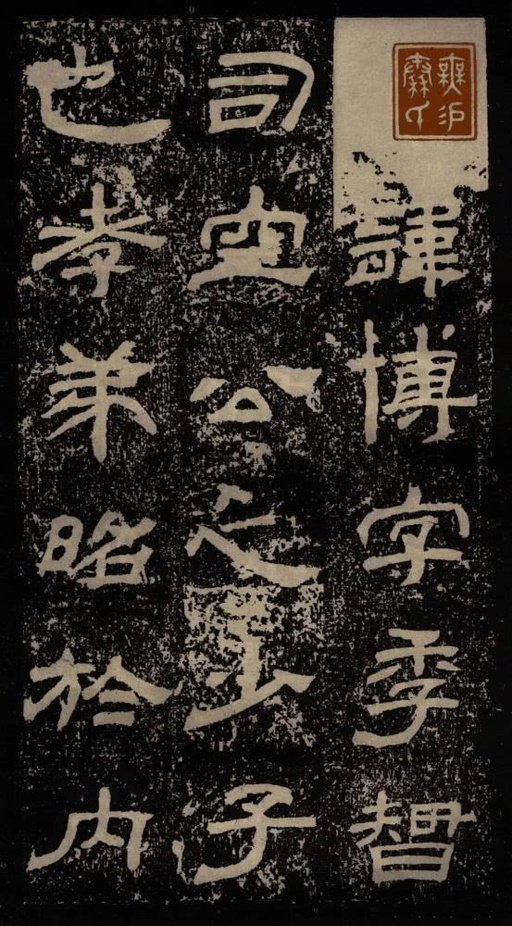 諱博字季智
司空公之少子
也孝弟昭於内